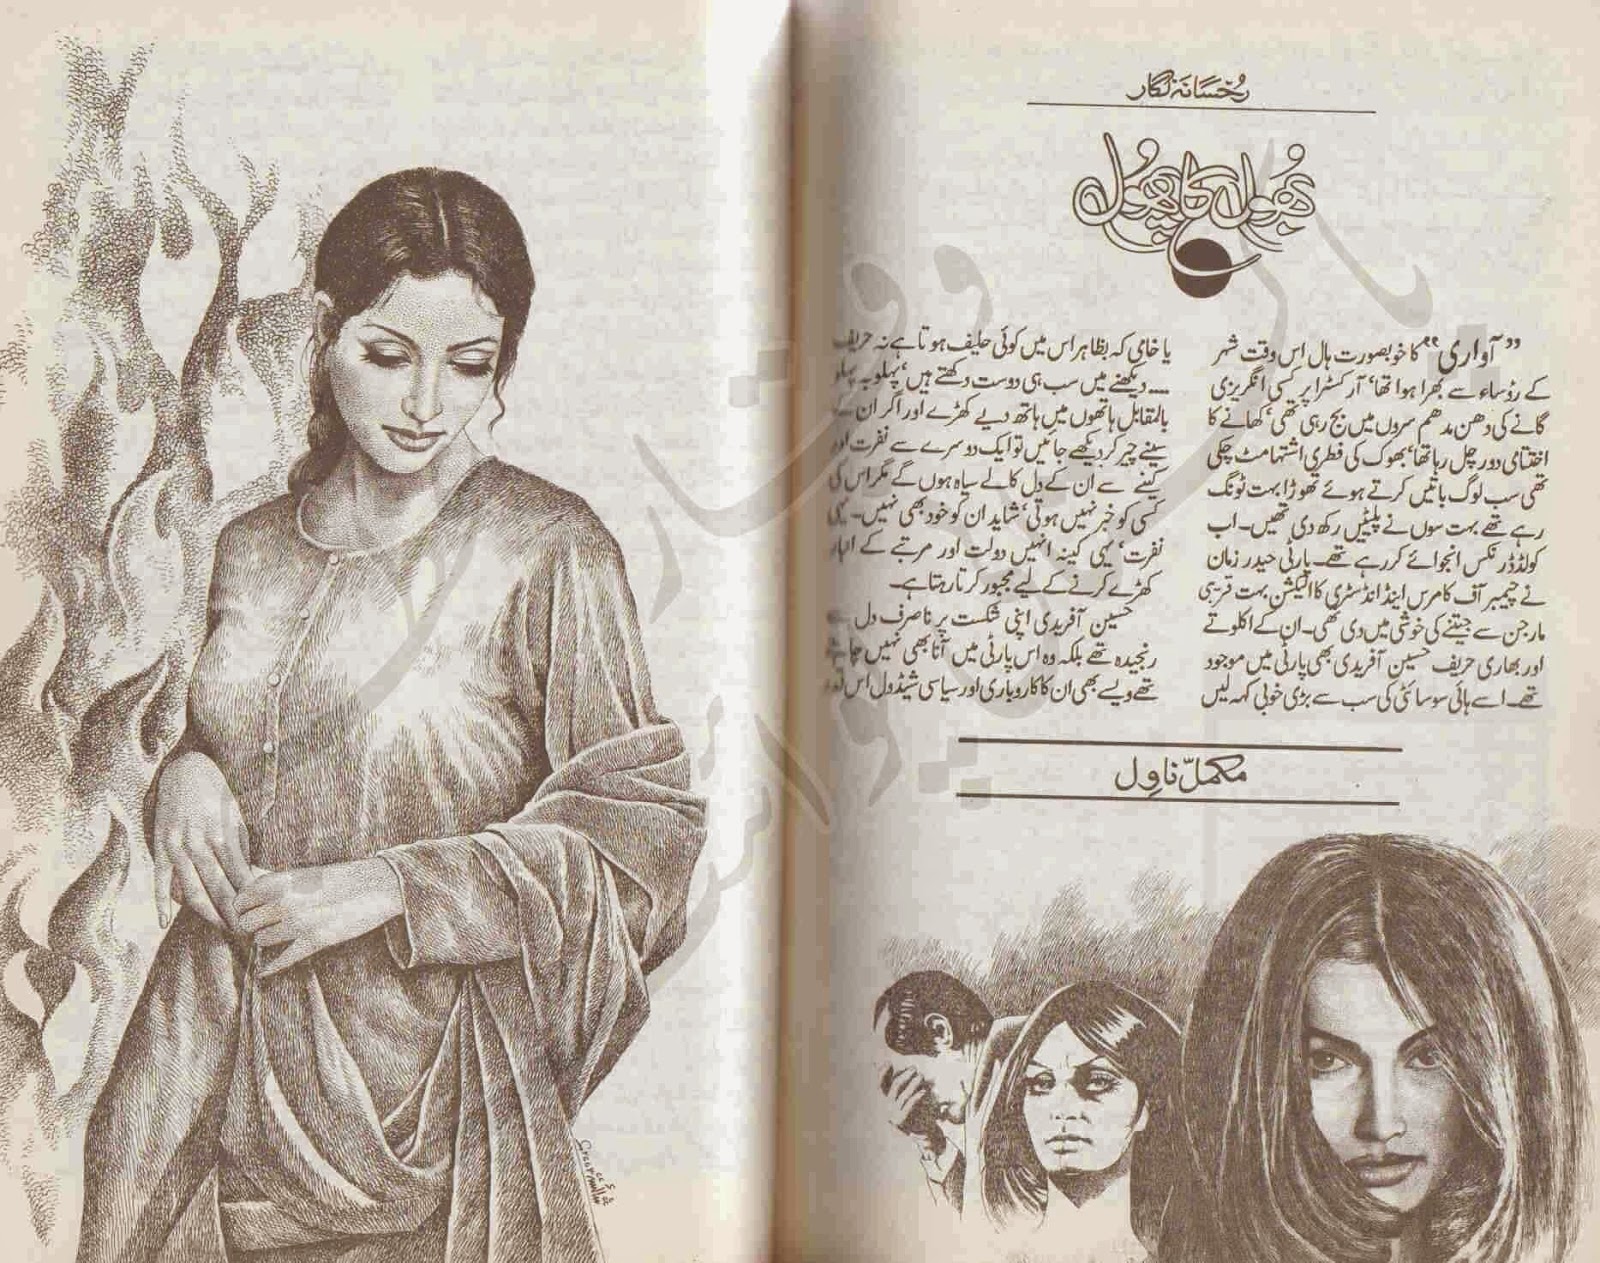 رُخسَانہ نگار
بھُول کا پھُول
”آواری“ کا خوبصورت ہال اس وقت شہر
کے رؤساء سے بھرا ہوا تھا‘ آرکسٹرا پر کسی انگریزی
گانے کی دھن مدھم سروں میں بج رہی تھی‘ کھانے کا
اختتامی دور چل رہا تھا‘ بھوک کی فطری اشتہا مٹ چکی
تھی سب لوگ باتیں کرتے ہوئے تھوڑا بہت ٹونگ
رہے تھے بہت سوں نے پلیٹیں رکھ دی تھیں۔ اب
کولڈ ڈرنکس انجوائے کر رہے تھے۔ پارٹی حیدر زمان
نے چیمبر آف کامرس اینڈ انڈسٹری کا الیکشن بہت قریبی
مارجن سے جیتنے کی خوشی میں دی تھی۔ ان کے اکلوتے
اور بھاری حریف حسین آفریدی بھی پارٹی میں موجود
تھے۔ اسے ہائی سوسائٹی کی سب سے بڑی خوبی کہہ لیں
یا خامی کہ بظاہر اس میں کوئی حلیف ہوتا ہے نہ حریف
.... دیکھنے میں سب ہی دوست دکھتے ہیں‘ پہلو بہ پہلو
بالمقابل ہاتھوں میں ہاتھ دیے کھڑے اور اگر ان کے
سینے چیر کر دیکھے جائیں تو ایک دوسرے سے نفرت اور
کینے سے ان کے دل کالے سیاہ ہوں گے مگر اس کی
کسی کو خبر نہیں ہوتی‘ شاید ان کو خود بھی نہیں۔ یہی
نفرت‘ یہی کینہ انہیں دولت اور مرتبے کے انبار
کھڑے کرنے کے لیے مجبور کرتا رہتا ہے۔
حسین آفریدی اپنی شکست پر ناصرف دل
رنجیدہ تھے بلکہ وہ اس پارٹی میں آنا بھی نہیں چاہتے
تھے ویسے بھی ان کا کاروباری اور سیاسی شیڈول اس
مکمل ناوِل